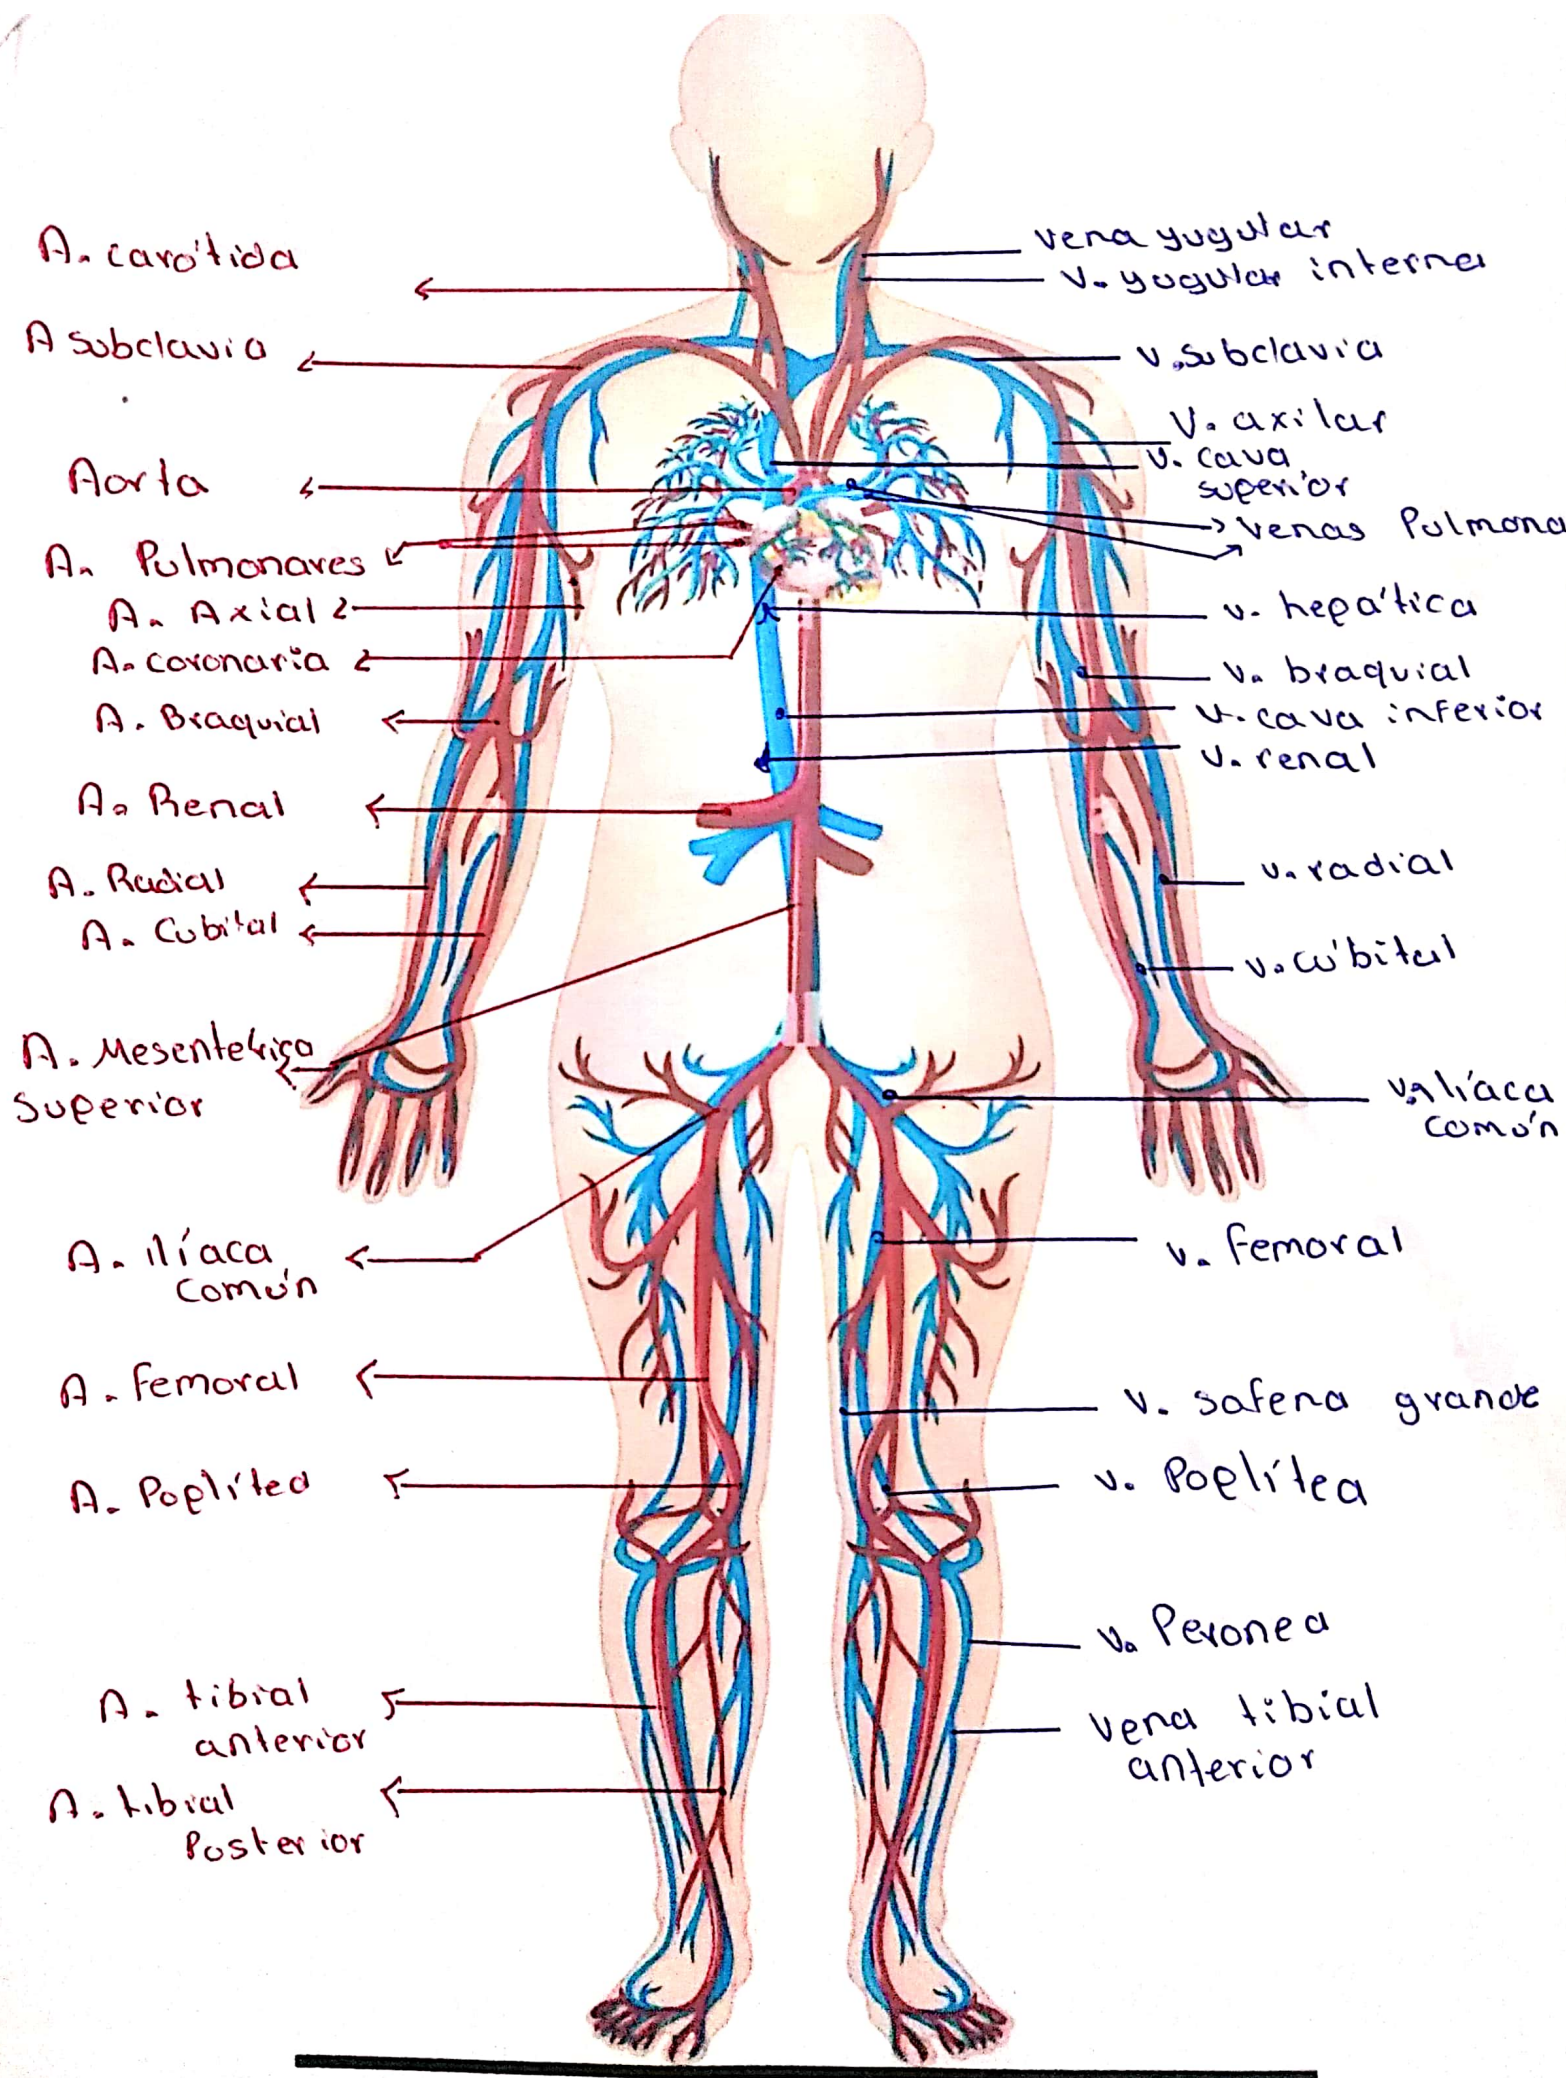 A. carótida
A subclavia
Aorta
A. Pulmonares
A. Axial
A. coronaria
A. Braquial
A. Renal
A. Radial
A. Cubital
A. Mesenterica
Superior
A. ilíaca
común
A. femoral
A. Poplítea
A. tibial
anterior
A. tibial
Posterior
vena yugular
v. yugular interna
v. subclavia
V. axilar
v. cava
superior
venas Pulmona
v. hepática
v. braquial
v. cava inferior
v. renal
v. radial
v. cúbital
v. ilíaca
común
v. femoral
v. safena grande
v. Poplítea
v. Peronea
vena tibial
anterior